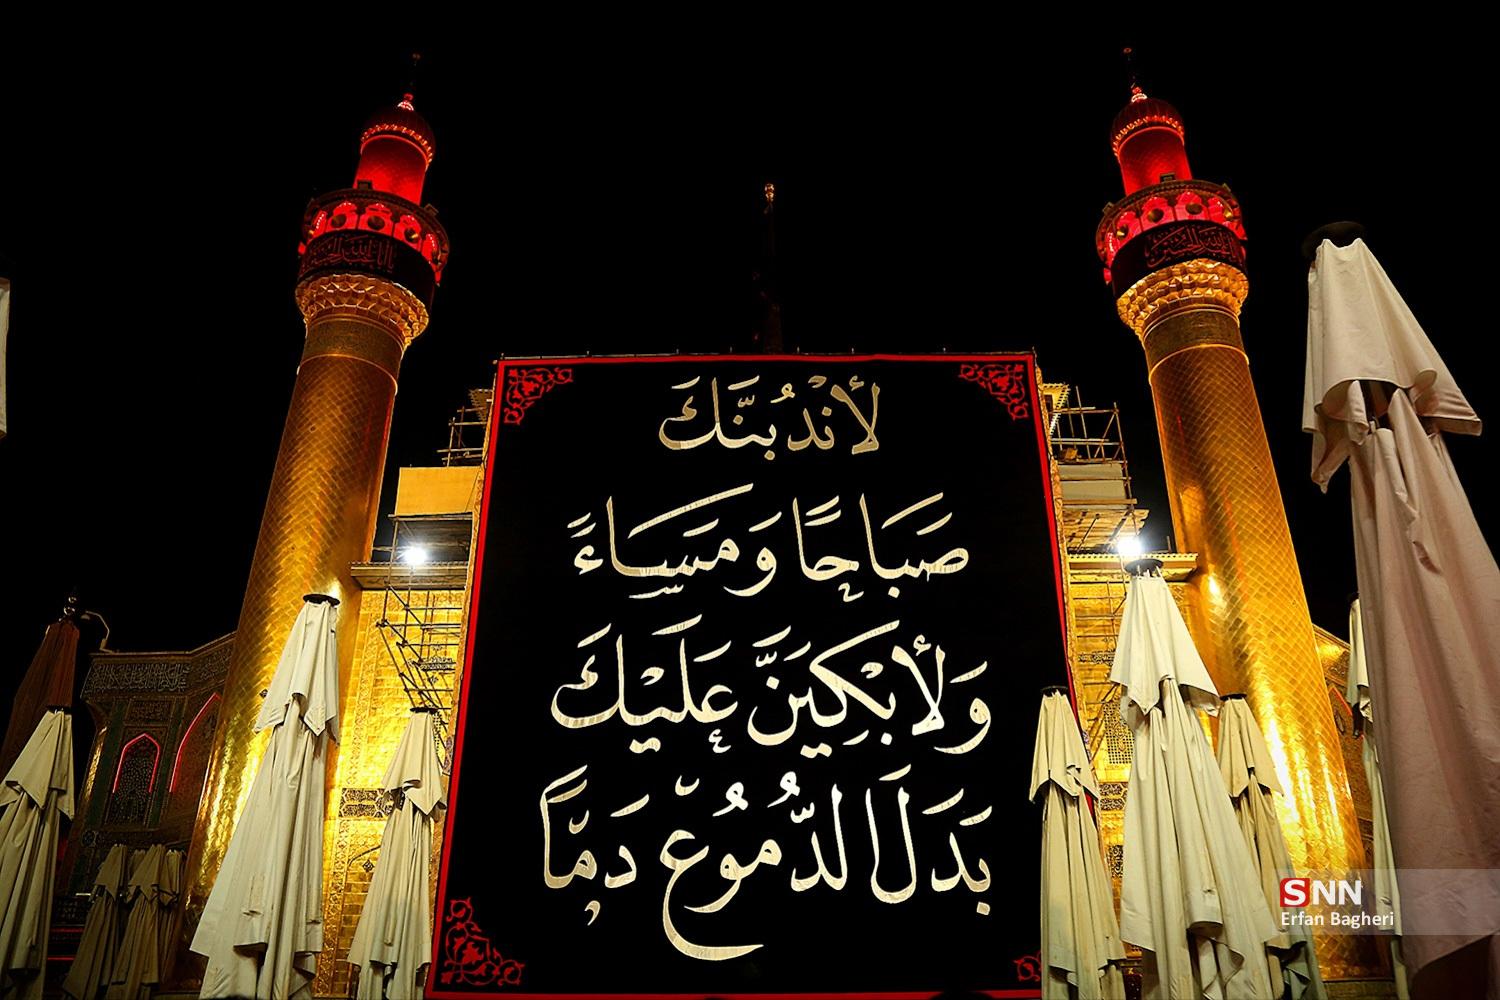 لأَنْدُبَنَّكَ
صَبَاحًا وَمَسَاءً
وَلأَبْكِيَنَّ عَلَيْكَ
بَدَلَ الدُّمُوعِ دَمًا
SNN
Erfan Bagheri